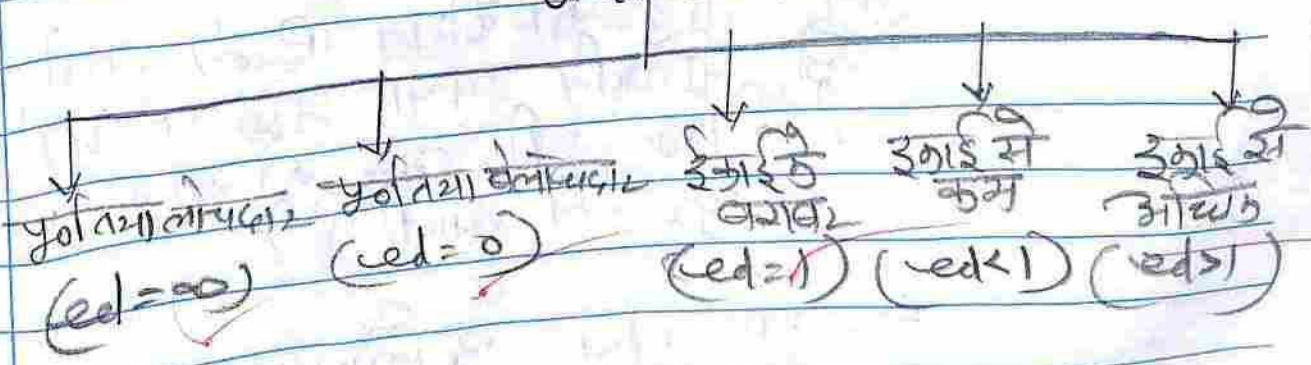 पूर्णतया लोचदार
(ed=∞)
पूर्णतया बेलोचदार
(ed=0)
ईकाई के
बराबर
(ed=1)
इकाई से
कम
(ed<1)
इकाई से
अधिक
(ed>1)